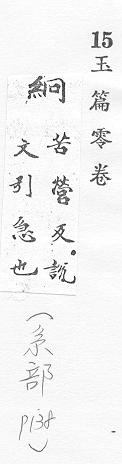 15
玉篇零卷
絅
苦營反説
文引急也
(糸部
P138)